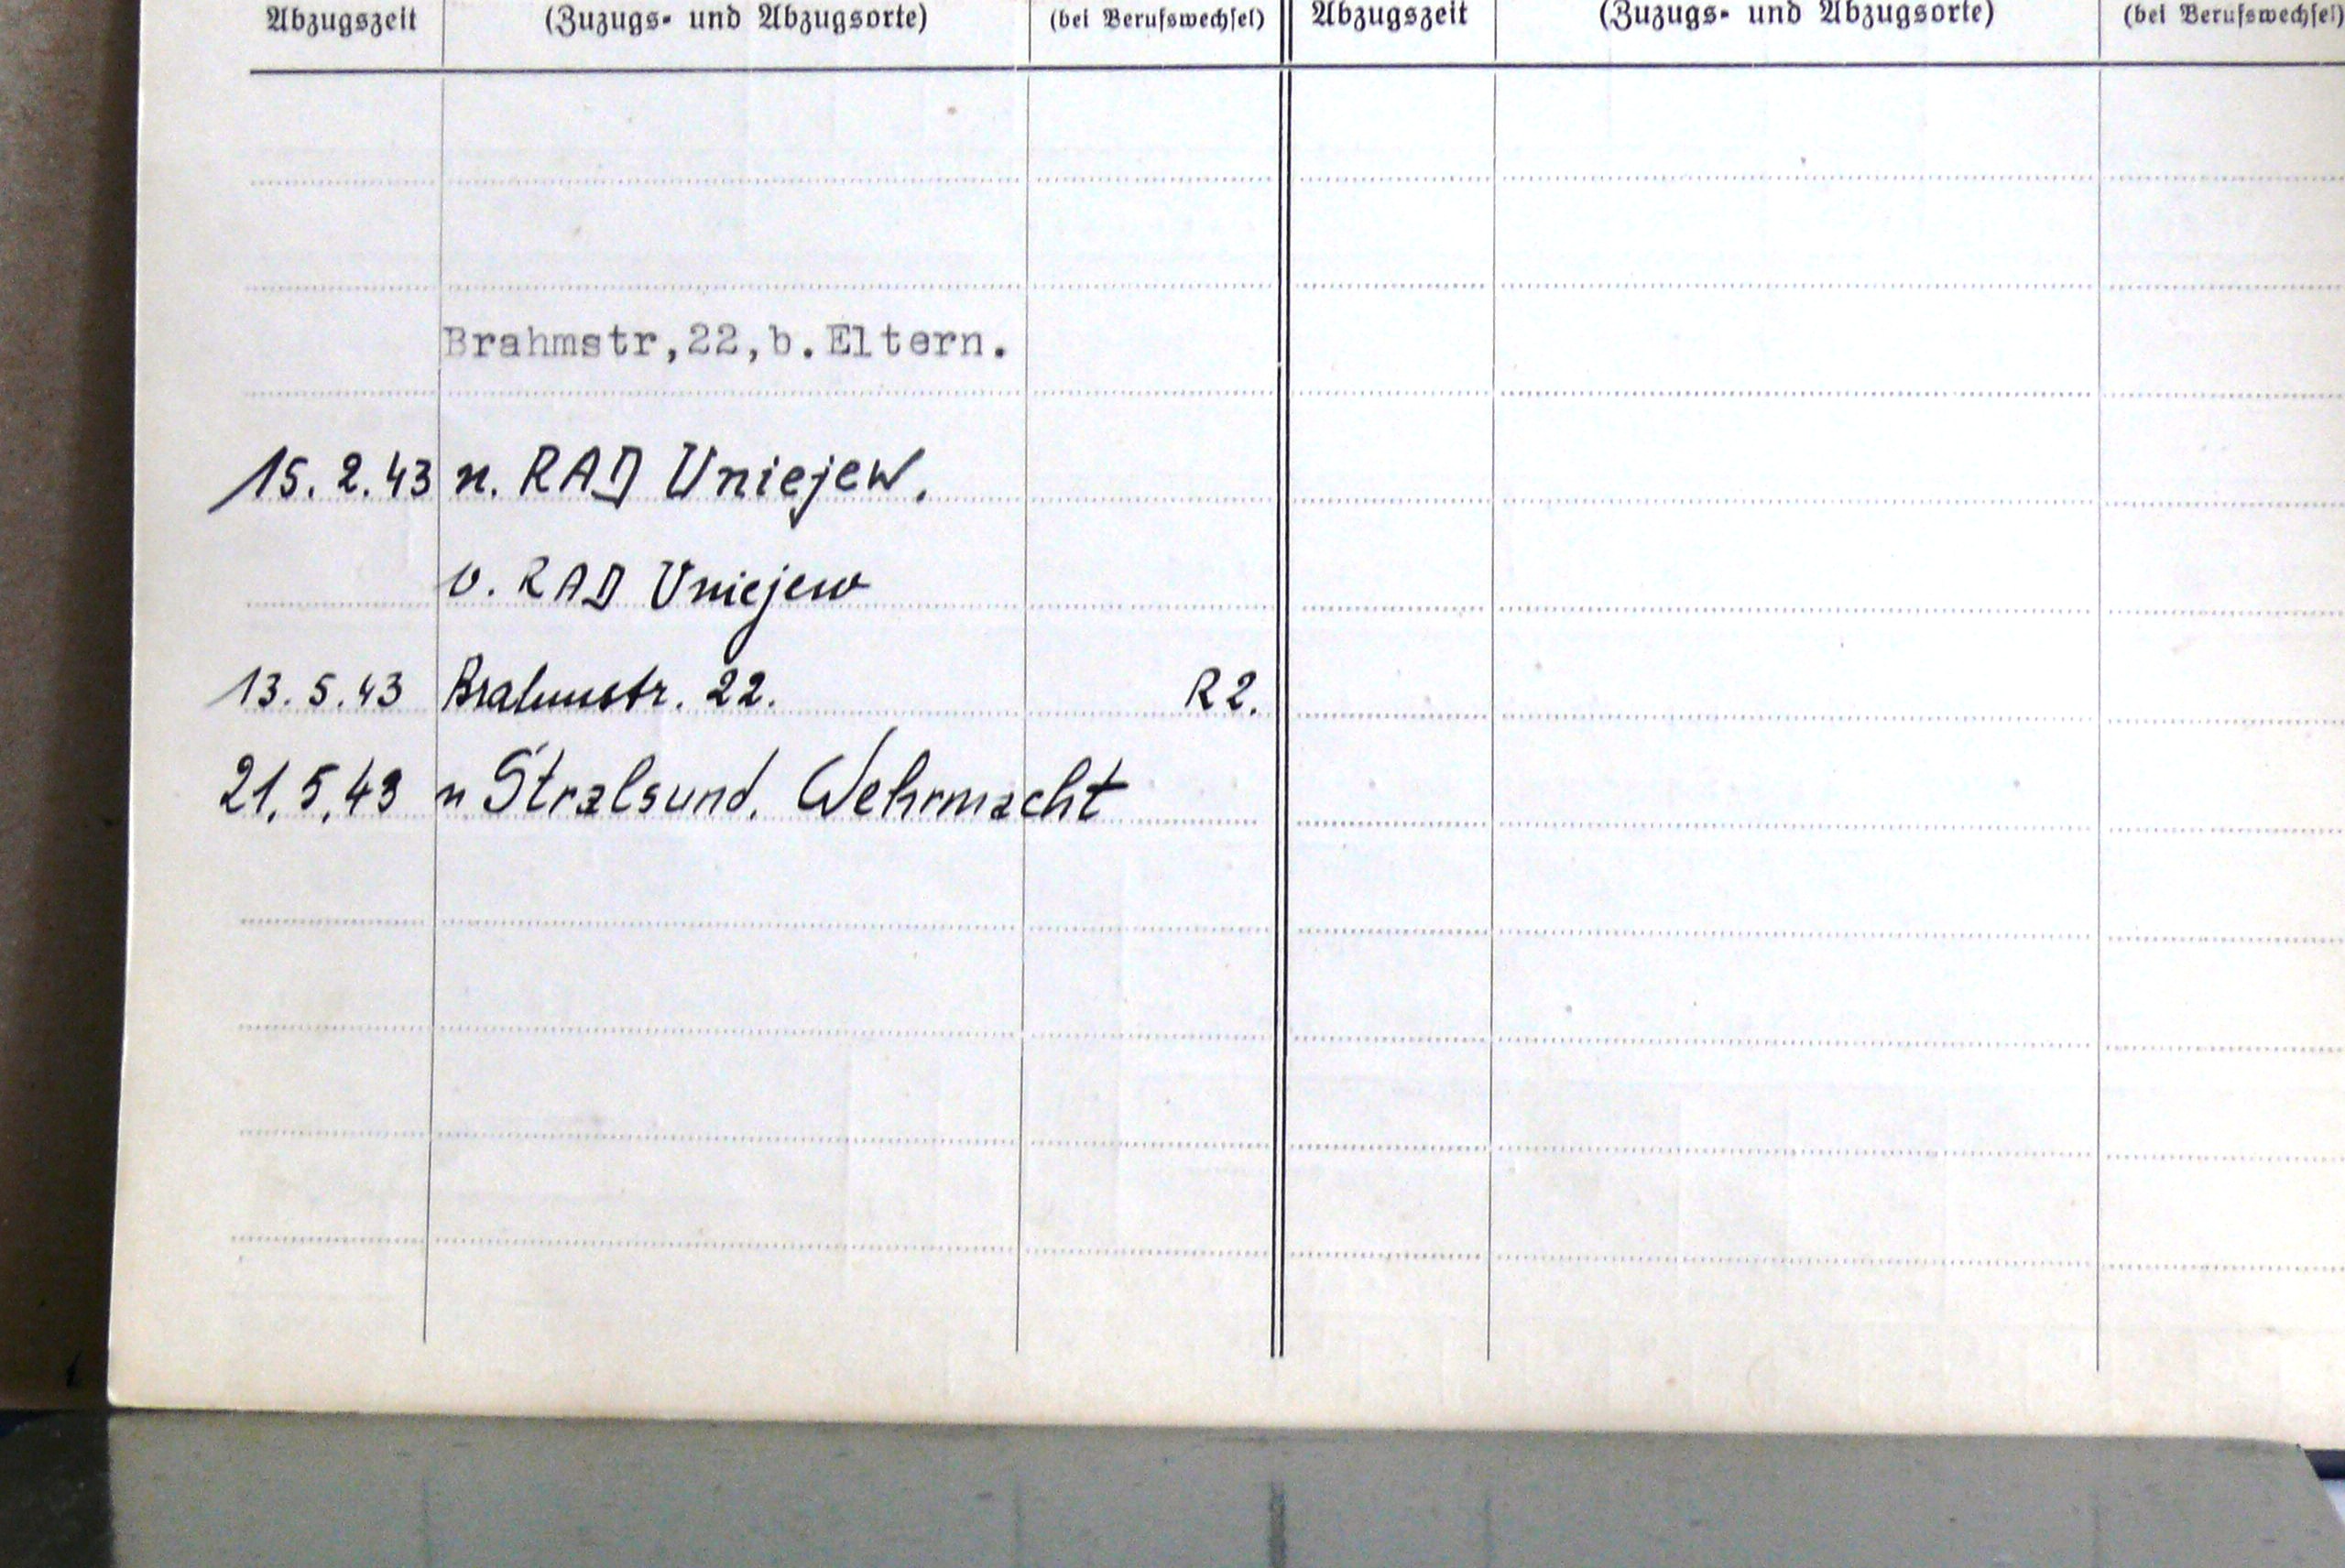 Abzugszeit (Zuzugs- und Abzugsorte) (bei Berufswechsel) Abzugszeit (Zuzugs- und Abzugsorte) (bei Berufswechsel)
Brahmstr,22,b.Eltern.
15.2.43 n. RAD Uniejew.
v. RAD Uniejew
13.5.43 Brahmstr. 22. R2.
21.5.43 n Stralsund. Wehrmacht